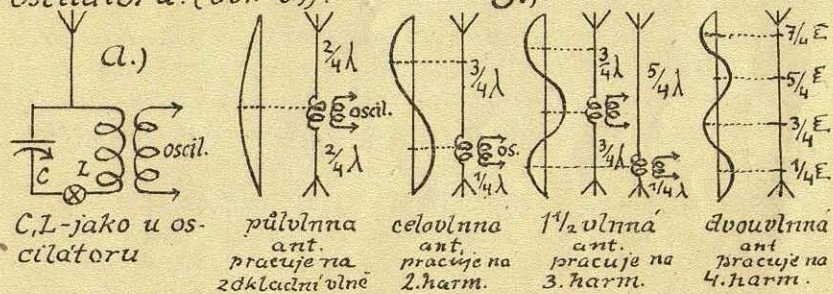 a.)
C
L
oscil.
C,L-jako u os-
cilátoru
2/4 λ
oscil.
2/4 λ
půlvlnná
ant.
pracuje na
základní vlně
3/4 λ
os.
1/4 λ
celovlnna
ant.
pracuje na
2.harm.
3/4 λ
3/4 λ
5/4 λ
1/4 λ
1 1/2 vlnná
ant.
pracuje na
3.harm.
7/4 Ɛ
5/4 Ɛ
3/4 Ɛ
1/4 Ɛ
dvouvlnna
ant
pracuje na
4.harm.